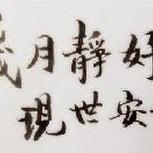 歲月靜好
現世安